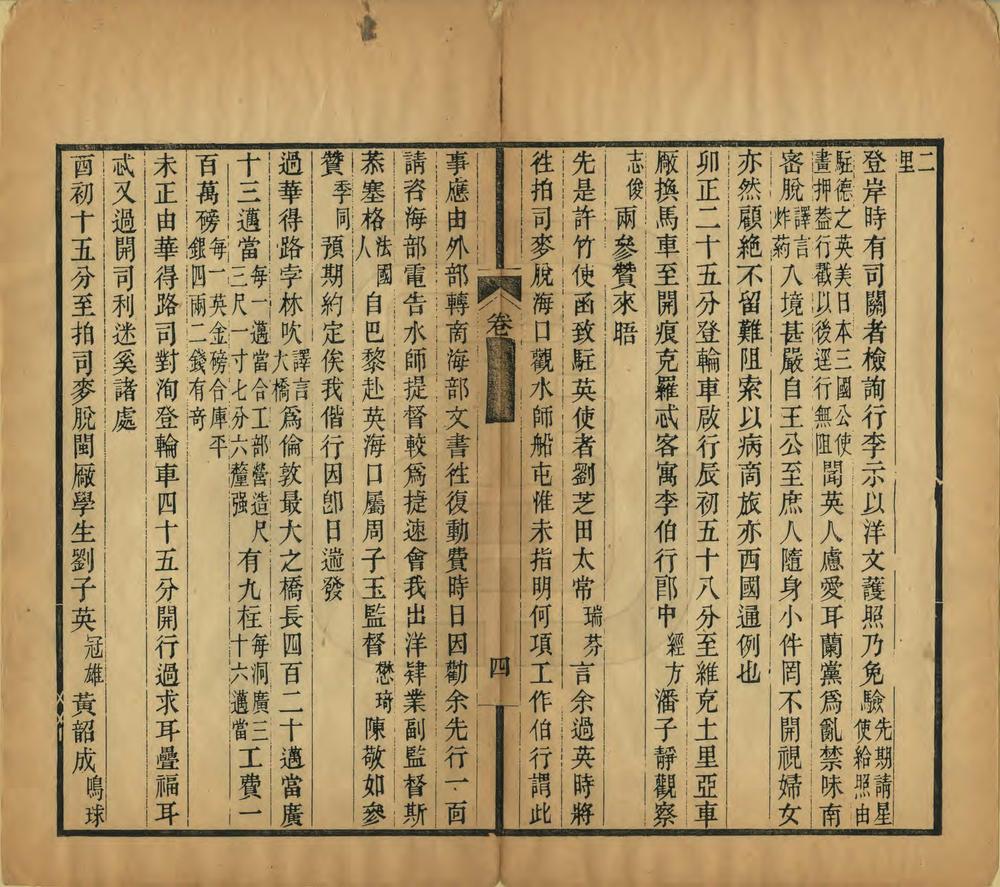 二里
登岸時有司關者檢詢行李示以洋文護照乃免驗先期請星使給照由
駐德之英美日本三國公使畫押葢行戳以後逕行無阻聞英人慮愛耳蘭黨爲亂禁味南
密脫譯言炸葯入境甚嚴自王公至庶人隨身小件罔不開視婦女
亦然顧絶不留難阻索以病商旅亦西國通例也
卯正二十五分登輪車啟行辰初五十八分至維克土里亞車
厰換馬車至開痕克羅忒客寓李伯行郎中經方潘子靜觀察
志俊兩參贊來晤
先是許竹使函致駐英使者劉芝田太常瑞芬言余過英時將
往拍司麥脫海口觀水師船屯惟未指明何項工作伯行謂此
卷
四
事應由外部轉商海部文書徃復動費時日因勸余先行一面
請咨海部電告水師提督較爲捷速會我出洋肄業副監督斯
恭塞格法國人自巴黎赴英海口屬周子玉監督懋琦陳敬如參
贊季同預期約定俟我偕行因卽日遄發
過華得路孛林吹譯言大橋爲倫敦最大之橋長四百二十邁當廣
十三邁當每一邁當合工部營造尺三尺一寸七分六釐强有九柱每洞廣三十六邁當工費一
百萬磅每一英金磅合庫平銀四兩二錢有奇
未正由華得路司對洵登輪車四十五分開行過求耳疊福耳
忒又過開司利迷奚諸處
酉初十五分至拍司麥脫閩厰學生劉子英冠雄黃韶成鳴球